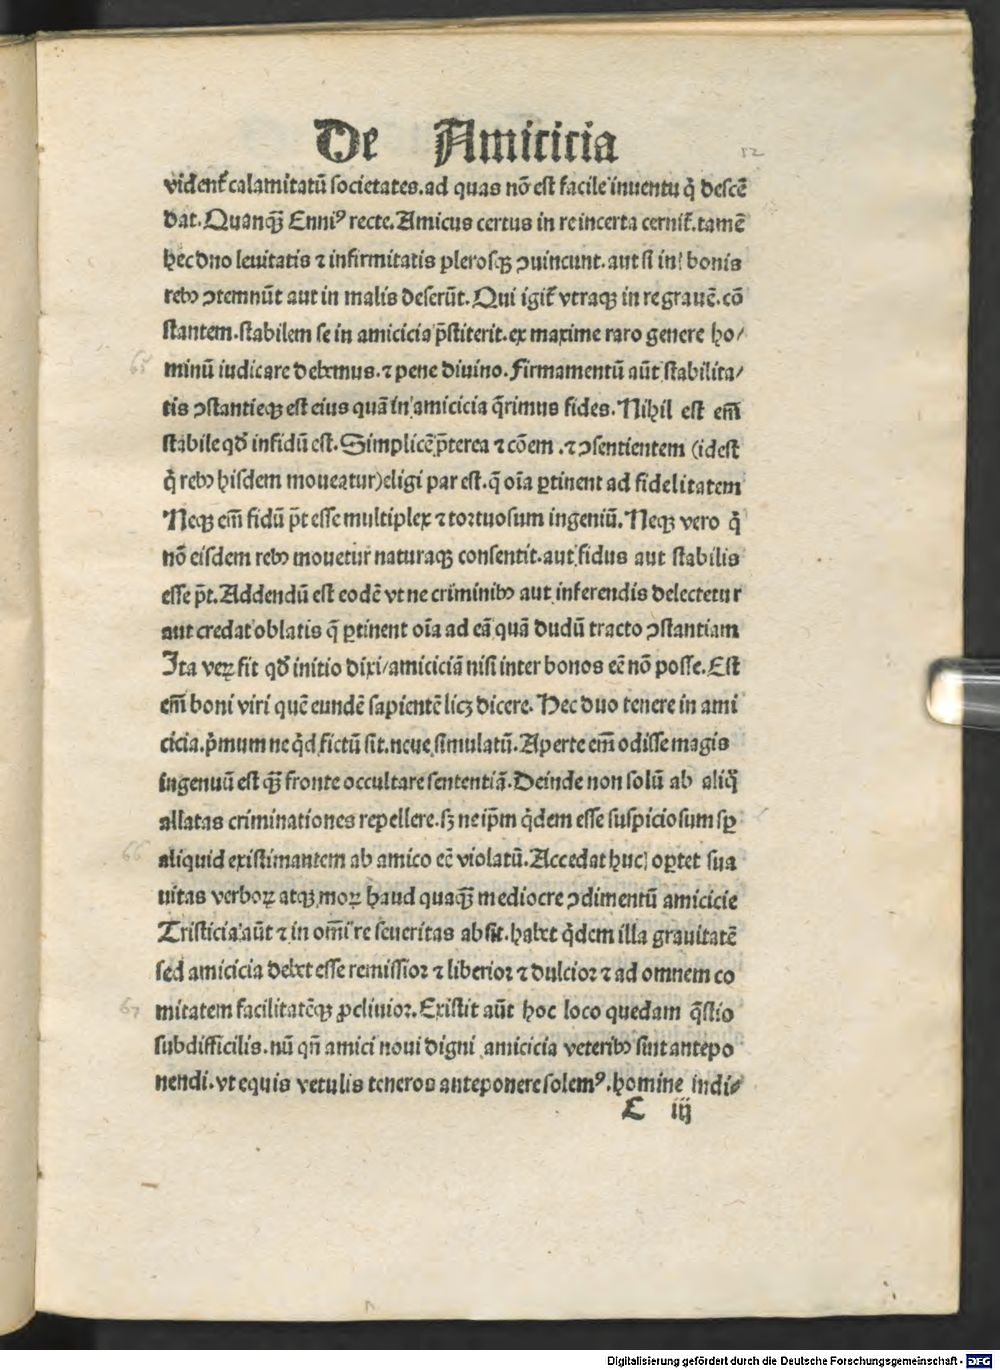 De Amicicia
52
vident᷑ calamitatū societates. ad quas nō est facile inuentu q̇ descē
dat. Quanq̄ꝫ Enniꝰ recte. Amicus certus in re incerta cernit᷑. tamē
hec duo leuitatis ⁊ infirmitatis plerosqꝫ ꝯuincunt. aut si in bonis
rebꝰ ꝯtemnūt aut in malis deserūt. Qui igit᷑ vtraqꝫ in re grauē. cō
stantem. stabilem se in amicicia p̄stiterit. ex maxime raro genere ho/
65
minū iudicare debemus. ⁊ pene diuino. Firmamentū aūt stabilita/
tis ꝯstantieqꝫ est eius quā in amicicia q̄rimus fides. Nihil est em̄
stabile qd̄ infidū est. Simplicē p̄terea ⁊ cōem. ⁊ ꝯsentientem (idest
q̇ rebꝰ hisdem moueatur) eligi par est. q̄ oīa ꝑtinent ad fidelitatem
Neqꝫ em̄ fidū p̄t esse multiplex ⁊ tortuosum ingeniū. Neqꝫ vero q̇
nō eisdem rebꝰ mouetur naturaqꝫ consentit. aut fidus aut stabilis
esse p̄t. Addendū est eodē vt ne criminibꝰ aut inferendis delectetur
aut credat oblatis q̄ ꝑtinent oīa ad eā quā dudū tracto ꝯstantiam
Ita veꝝ fit qd̄ initio dixi/ amiciciā nisi inter bonos eē nō posse. Est
em̄ boni viri quē eundē sapientē licꝫ dicere. Hec duo tenere in ami
cicia. p̄mum ne q̇d fictū sit. neue simulatū. Aperte em̄ odisse magis
ingenuū est q̄ꝫ fronte occultare sententiā. Deinde non solū ab aliq̊
allatas criminationes repellere. sꝫ ne ip̄m q̇dem esse suspiciosum sꝑ
66
aliquid existimantem ab amico eē violatū. Accedat huc oꝑtet sua
uitas verboꝝ atqꝫ moꝝ haud quaq̄ꝫ mediocre ꝯdimentū amicicie
Tristicia aūt ⁊ in om̄i re seueritas absit. habet q̇dem illa grauitatē
sed amicicia debet esse remissior ⁊ liberior ⁊ dulcior ⁊ ad omnem co
67
mitatem facilitatēqꝫ ꝓcliuior. Existit aūt hoc loco quedam q̄stio
subdifficilis. nū qn̄ amici noui digni amicicia veteribꝰ sint antepo
nendi. vt equis vetulis teneros anteponere solemꝰ. homine indi⸗
E iij
Digitalisierung gefördert durch die Deutsche Forschungsgemeinschaft - DFG